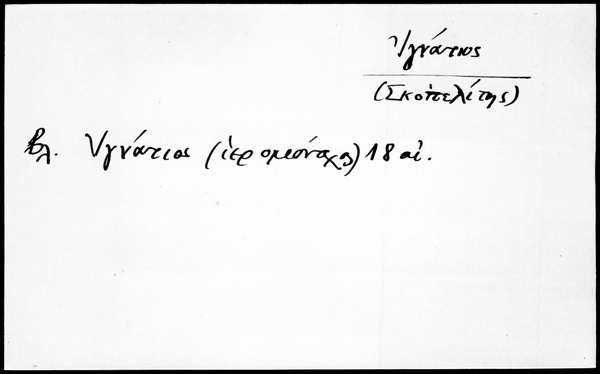 Ἰγνάτιος
(Σκοπελίτης)
βλ. Ἰγνάτιος (ἱερομονάχος) 18 αἰ.